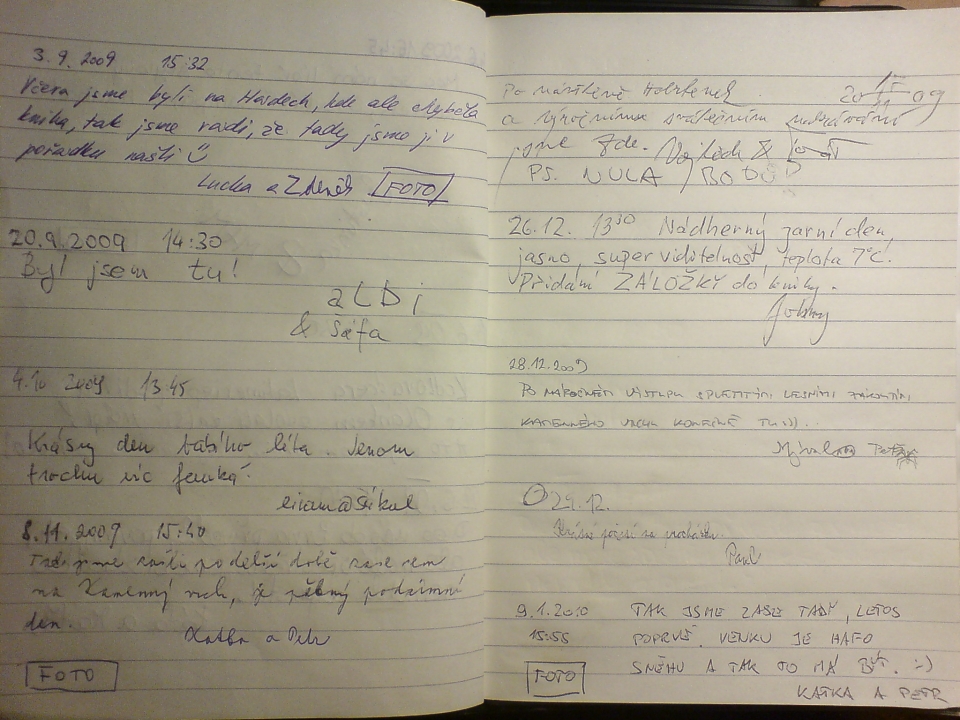 3.9.2009 15:32
Včera jsme byli na Hardech, kde ale chyběla
kniha, tak jsme rádi, že tady jsme ji v
pořádku našli
Lucka a Zdeněk FOTO
20.9.2009 14:30
Byli jsem tu!
aLDi
& Šáfa
4.10 2009 13:45
Krásny den babího léta. Jenom
trochu víc fouká.
8.11.2009 15:40
Tak jsme zašli po delší době zase sem
na Kamenný vrch, je pěkný podzimní
den.
Katka a Petr
FOTO
Po návštěvě
a výročním
jsme zde. Vojtěch &
PS. NULA BODŮ
26.12. 13³⁰ Nádherný jarní den,
jasno, super viditelnost, teplota 7°C.
Přidání ZÁLOŽKY do knihy.
28.12.2009
PO NÁROČNÉM VÝSTUPU SPLETITÝMI LESNÍMI ZÁKOUTÍMI
KAMENNÉHO VRCHU KONEČNĚ TU :)).
29.12.
Krásné počasí na procházku.
Pavel
9.1.2010 TAK JSME ZASE TADY, LETOS
15:55 POPRVÉ. VENKU JE HAFO
SNĚHU A TAK TO MÁ BÝT. :-)
FOTO
KATKA A PETR